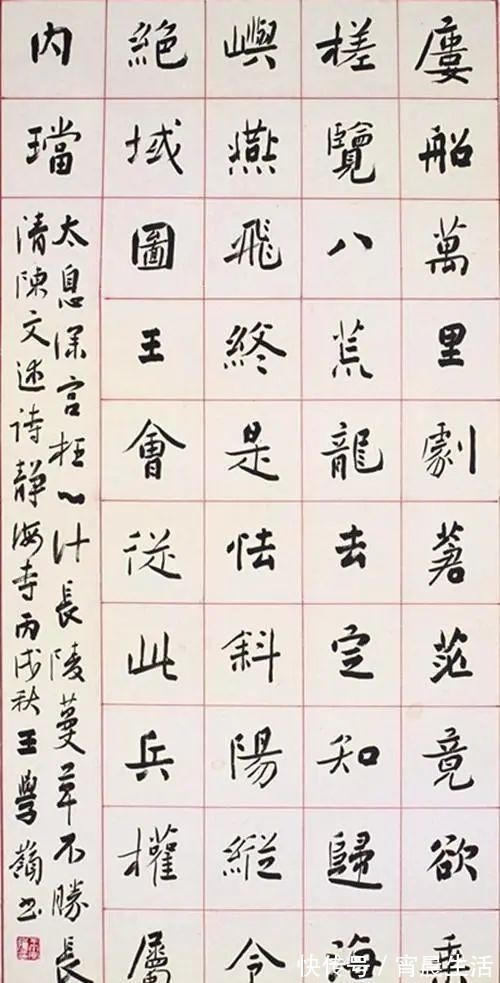 廔船萬里劇蒼茫竟欲乘
槎覽八荒龍去定知歸海
嶼燕飛終是怯斜陽縱令
絕域圖王會從此兵權屬
内璫
太息深宫枉心计長陵蔓草不勝長
清陳文述诗靜海寺丙戌秋王學嶺书
快传号/宵晨生活